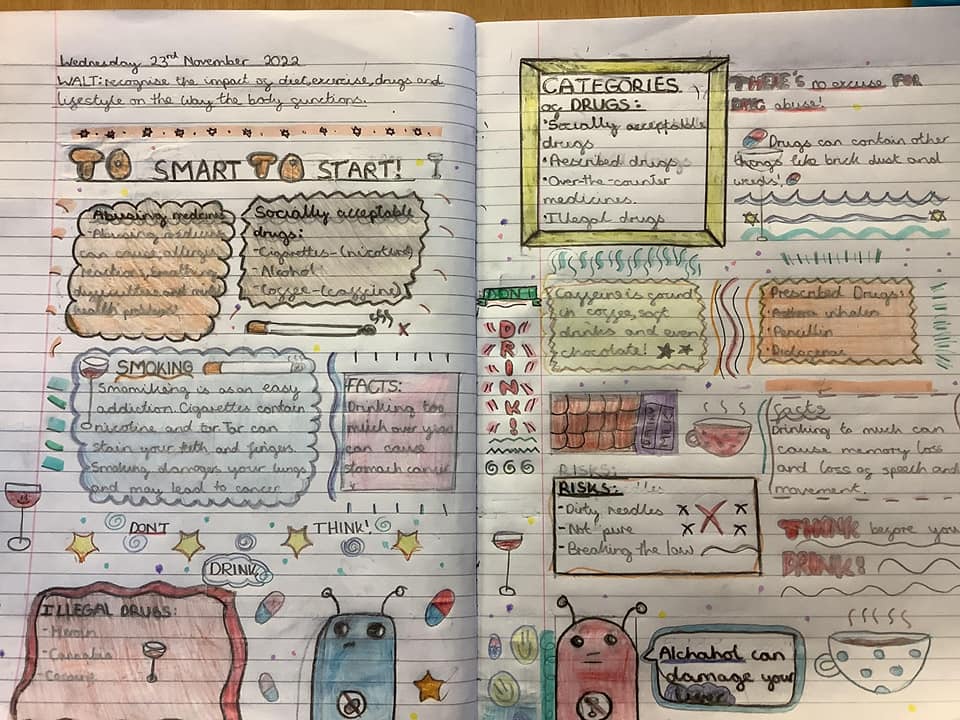 Wednesday 23rd November 2022
WALT: recognise the impact of diet, exercise, drugs and
lifestyle on the way the body functions.
TO SMART TO START!
Abusing medicines
-Abusing medicine
can cause allergic
reactions, breathing
difficulties and
health problems
Socially acceptable
drugs:
-Cigarettes-(nicotine)
-Alcohol
-Coffee-(caffeine)
SMOKING
is as an easy
addiction. Cigarettes contain
nicotine and tar. Tar can
stain your teeth and fingers.
Smoking damages your lungs
and may lead to cancer
FACTS:
Drinking too
much over years
can cause
stomach cancer
DON'T
THINK!
DRINK
ILLEGAL DRUGS:
-Heroin
-Cannabis
-Cocaine
CATEGORIES
of DRUGS:
•Socially acceptable
drugs
•Prescribed drugs
•Over-the-counter
medicines.
•Illegal drugs
THERE'S no excuse FOR
DRUG abuse!
Drugs can contain other
things like brick dust and
weeds!
DON'T
DRINK!
Caffeine is found
in coffee, soft
drinks and even
chocolate!
Prescribed Drugs:
•Asthma inhaler
•Pencillin
facts
Drinking to much can
cause memory loss
and loss of speech and
movement.
RISKS:
RISKS:
-Dirty needles
-Not pure
-Breaking the law
THINK before you
DRINK!
Alchahol can
damage your
liver